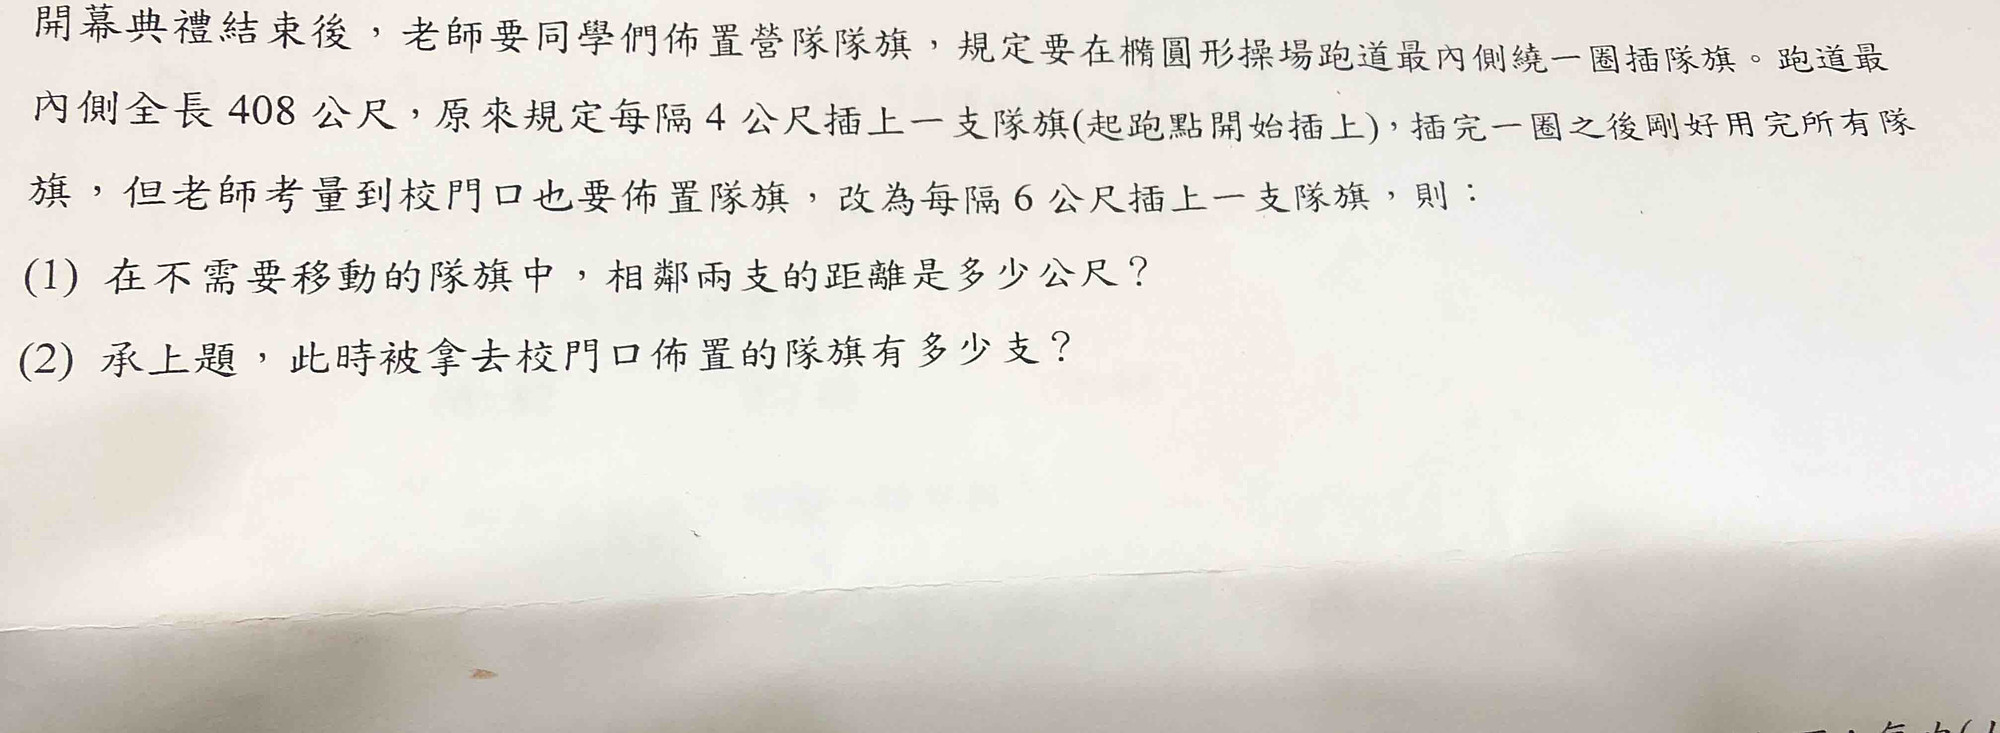 開幕典禮結束後，老師要同學們佈置營隊隊旗，規定要在橢圓形操場跑道最內側繞一圈插隊旗。跑道最
內側全長 408 公尺，原來規定每隔 4 公尺插上一支隊旗(起跑點開始插上)，插完一圈之後剛好用完所有隊
旗，但老師考量到校門口也要佈置隊旗，改為每隔 6 公尺插上一支隊旗，則：
(1) 在不需要移動的隊旗中，相鄰兩支的距離是多少公尺？
(2) 承上題，此時被拿去校門口佈置的隊旗有多少支？